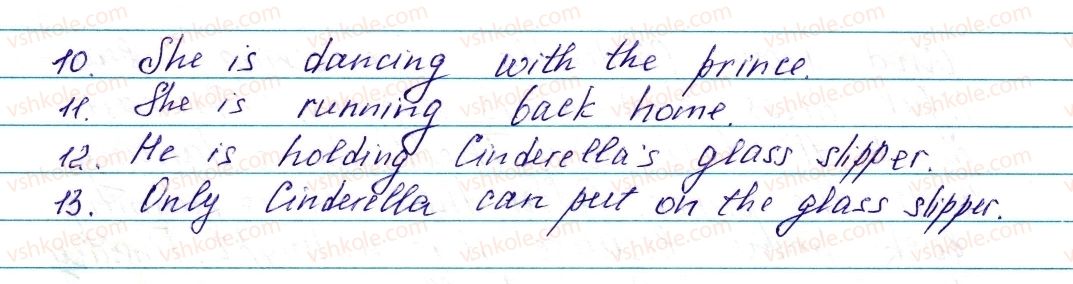 10. She is dancing with the prince.
11. She is running back home.
12. He is holding Cinderella's glass slipper.
13. Only Cinderella can put on the glass slipper.